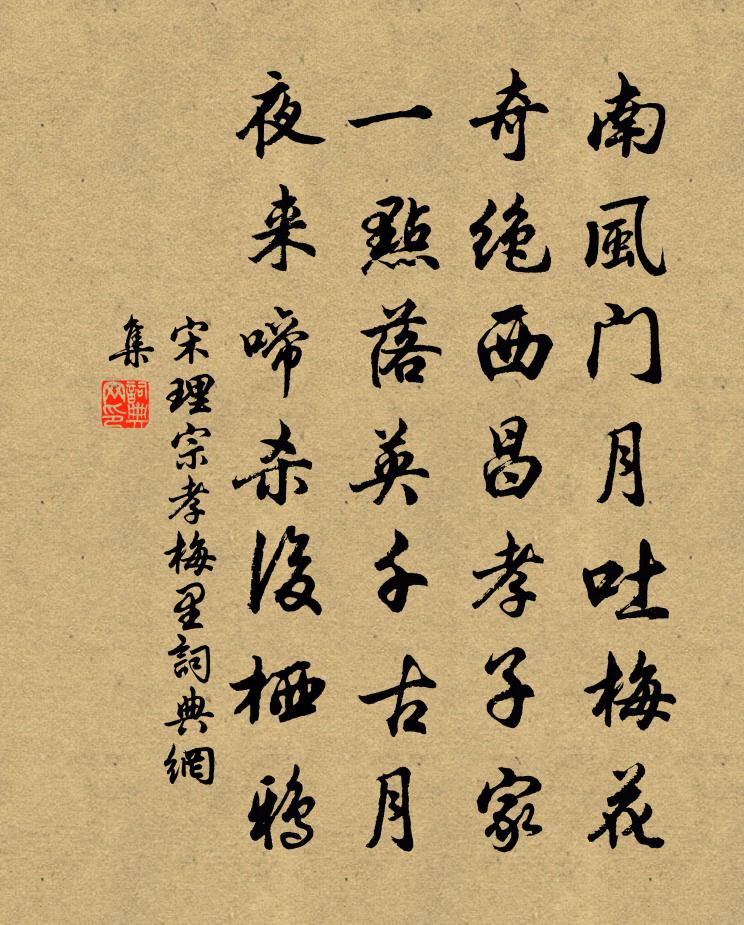 南風门月吐梅花
奇絶西昌孝子家
一點落英千古月
夜来啼杀後栖鴉
宋理宗孝梅里詞典網
集
詞典网印